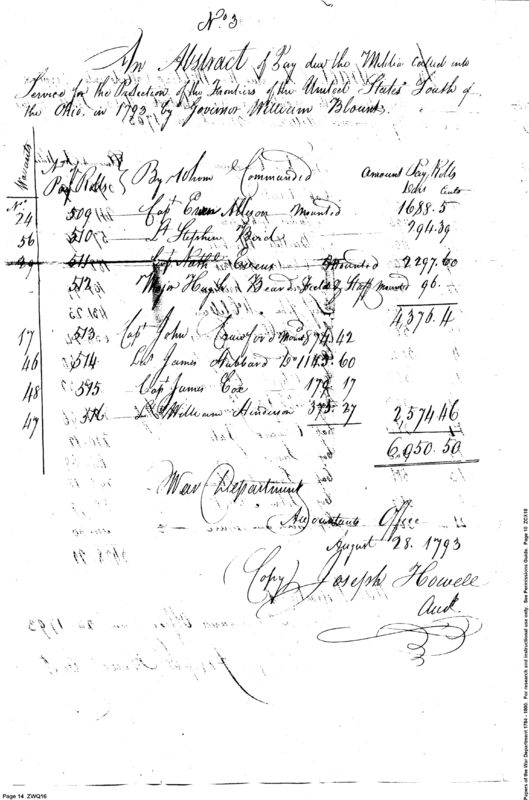 No. 3
An Abstract of Pay due the Militia called into
Service for the Protection of the Frontiers of the United States South of
the Ohio in 1793 by Govirnor William Blount.
Warrants No. Pay Rolls By Whom Commanded Amount Pay Rolls
Dolls Cents
No. 24 509 Capt Evan Allison Mounted 1688.5
56 510 Lt Stephen Bird 294.39
29 511 Capt Nathl Evens Mounted 2297.60
512 Major Hugh Beard Field & Staff mounted 96.
4376.4
17 513 Capt John Crawford Mound 874.42
46 514 James Hubbard Do 1143.60
48 515 Capt James Cox 179 17
47 516 Lt William Henderson 375.27 2,574.46
6,950.50
War Department
Accountants Office
August 28. 1793
Copy Joseph Howell
Audr
Page 14 ZWQ16
Papers of the War Department 1784 - 1800. For research and instructional use only. See Permissions Guide. Page 10 ZCI18